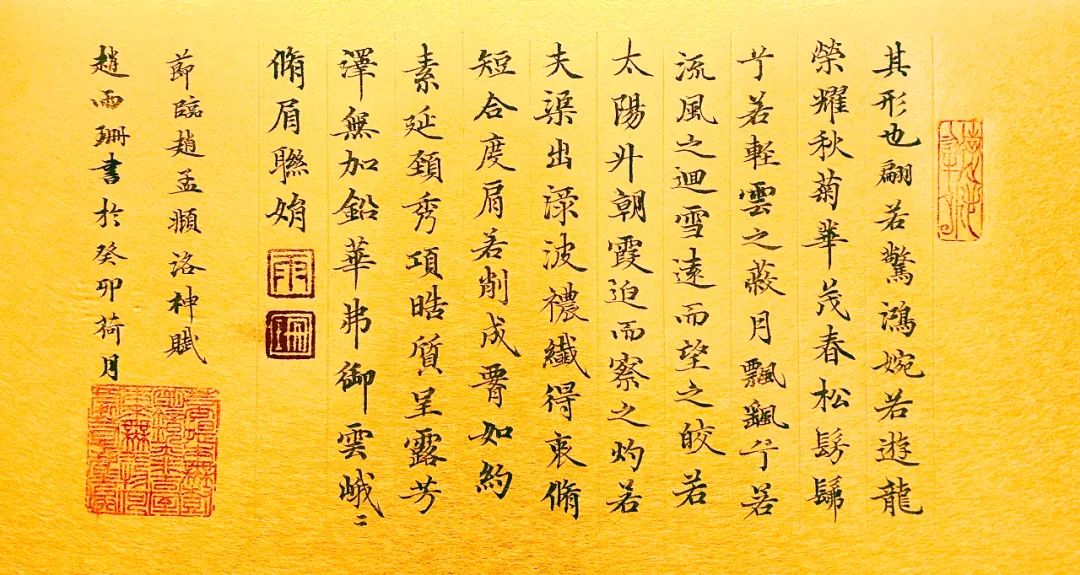 其形也翩若驚鴻婉若遊龍
榮耀秋菊華茂春松髣髴
兮若軽雲之蔽月飄颻兮若
流風之迴雪遠而望之皎若
太陽升朝霞迫而察之灼若
夫渠出渌波襛纖得衷脩
短合度肩若削成腰如約
素延頸秀項晧質呈露芳
澤無加鉛華弗御雲峨〻
脩眉聯娟
雨
珊
節臨趙孟頫洛神賦
趙雨珊書於癸卯荷月